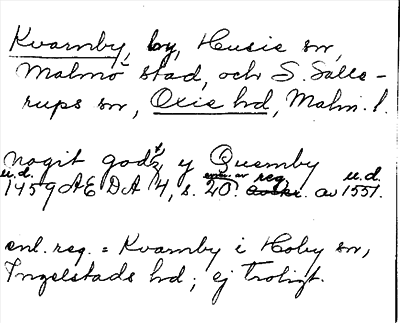 Kvarnby, by, Husie sn,
Malmö stad, och S. Salle-
rups sn, Oxie hd, Malm. l.
nogit godz y Quernby
u.d. 1459 AE DA 4, s. 20. enl. av reg. av u.d. 1551.
enl. reg. = Kvarnby i Hoby sn,
Ingelstads hd; ej troligt.